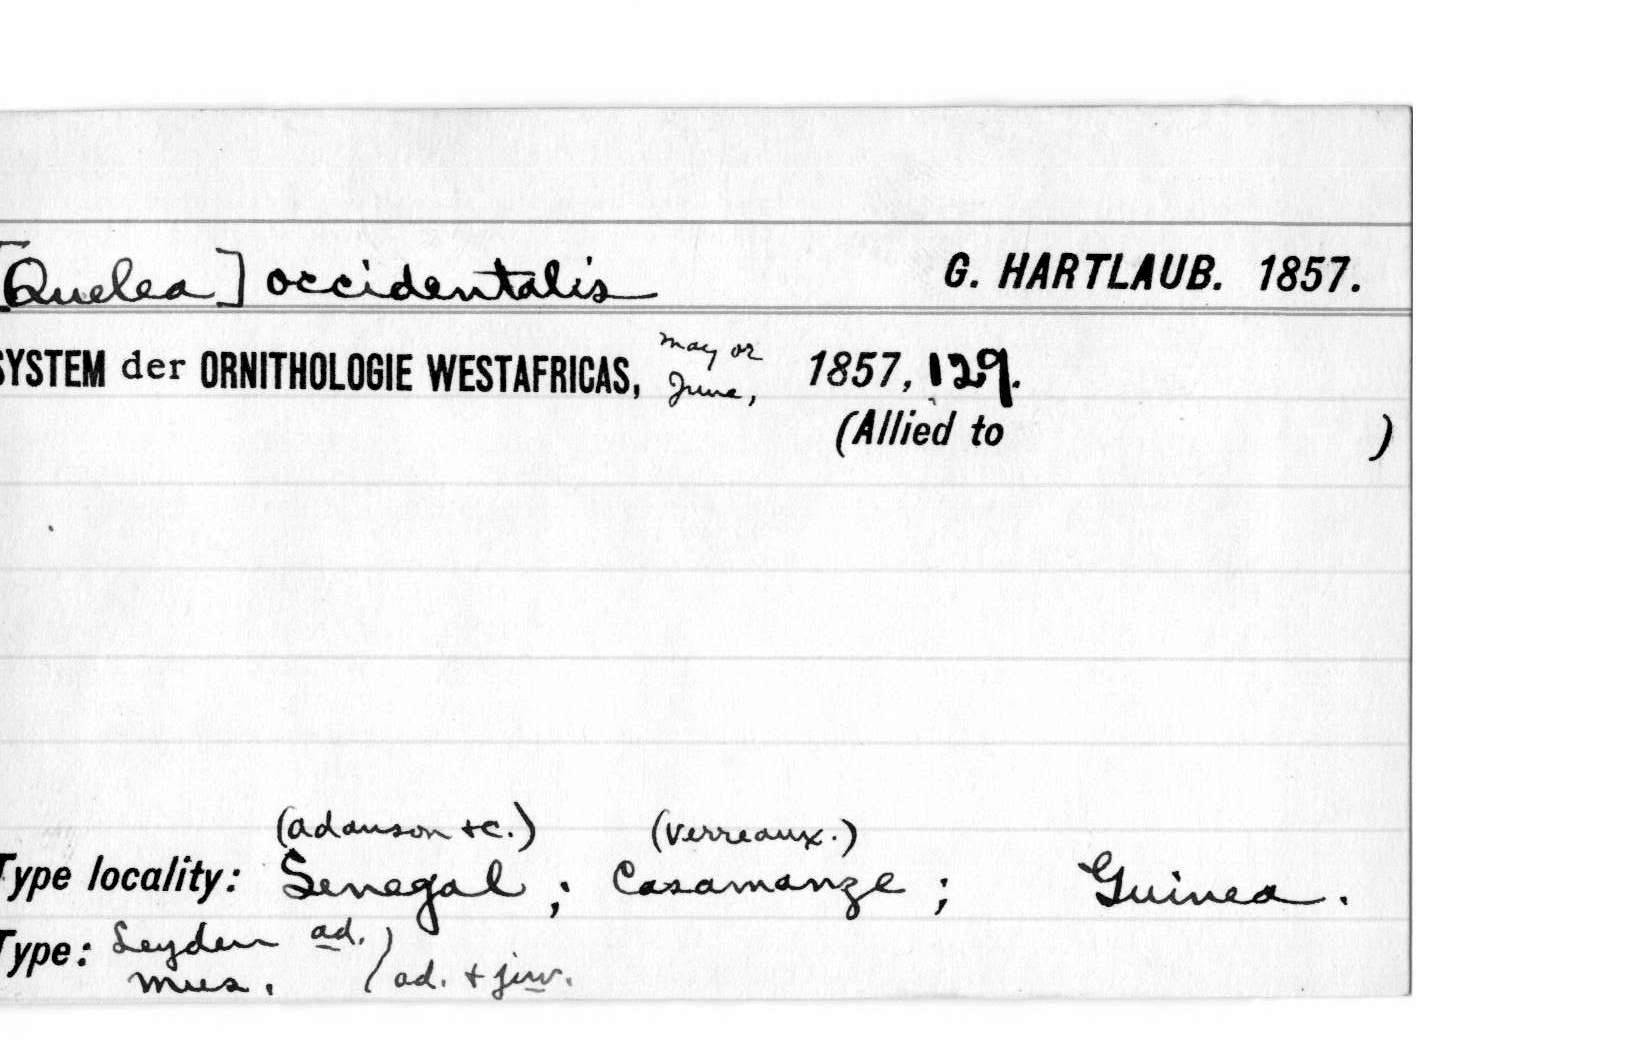 [Quelea] occidentalis G. HARTLAUB. 1857.
SYSTEM der ORNITHOLOGIE WESTAFRICAS, may or June, 1857, 129.
(Allied to )
(Adanson +c.) (Verreaux.)
Type locality: Senegal ; Casamanze ; Guinea.
Type: Leyden ad.
mus. / ad. + juv.